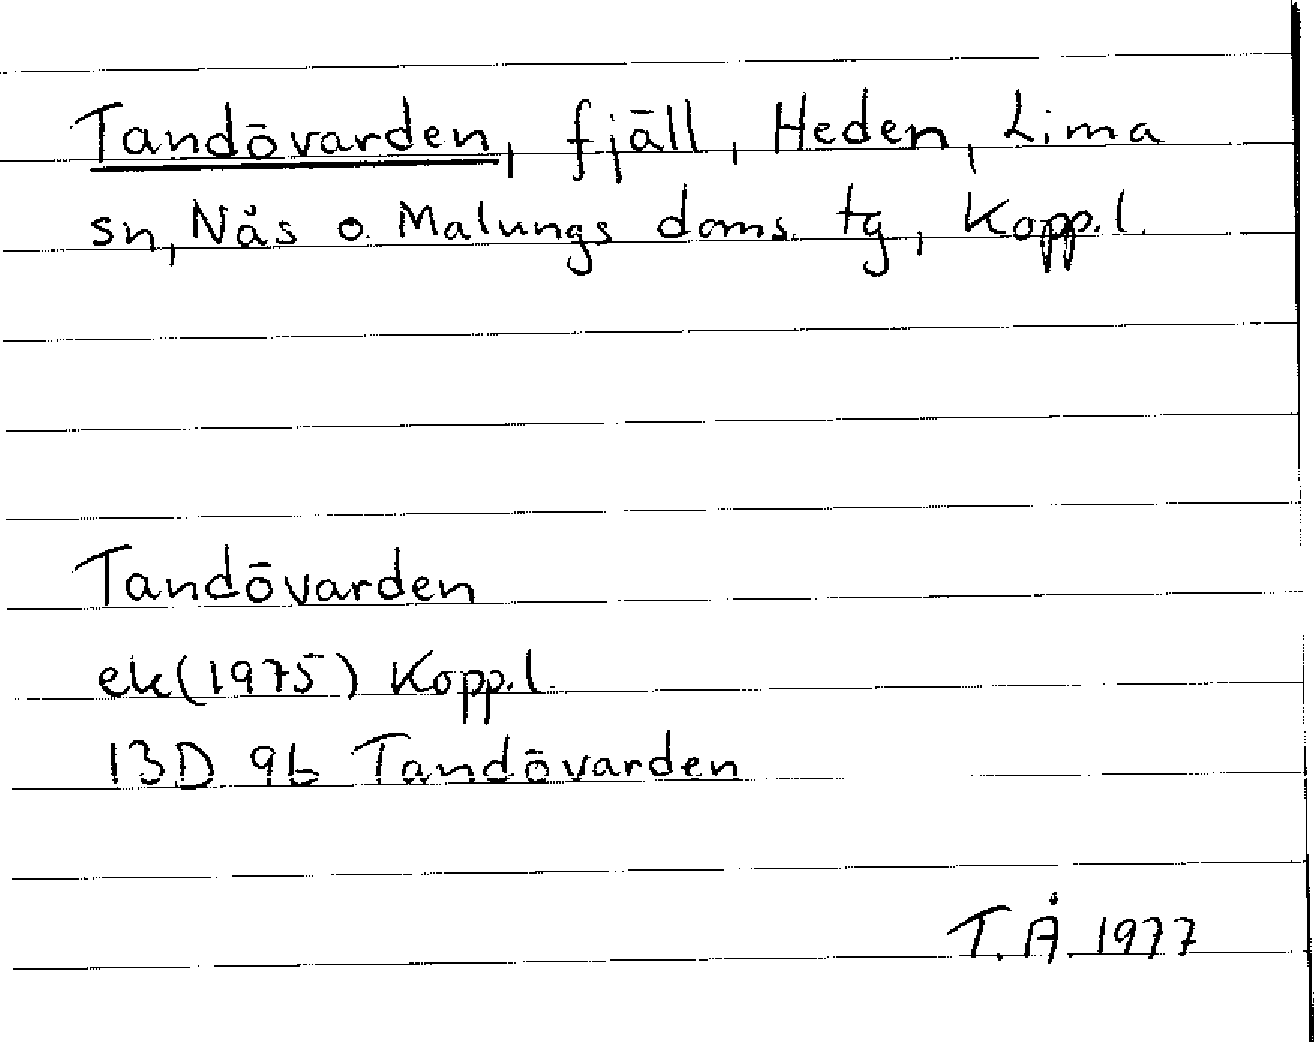 Tandövarden, fjäll, Heden, Lima
sn, Nås o. Malungs doms. tg, Kopp.l.
Tandövarden
ek(1975) Kopp.l.
13D 9b Tandövarden
T.Å. 1977